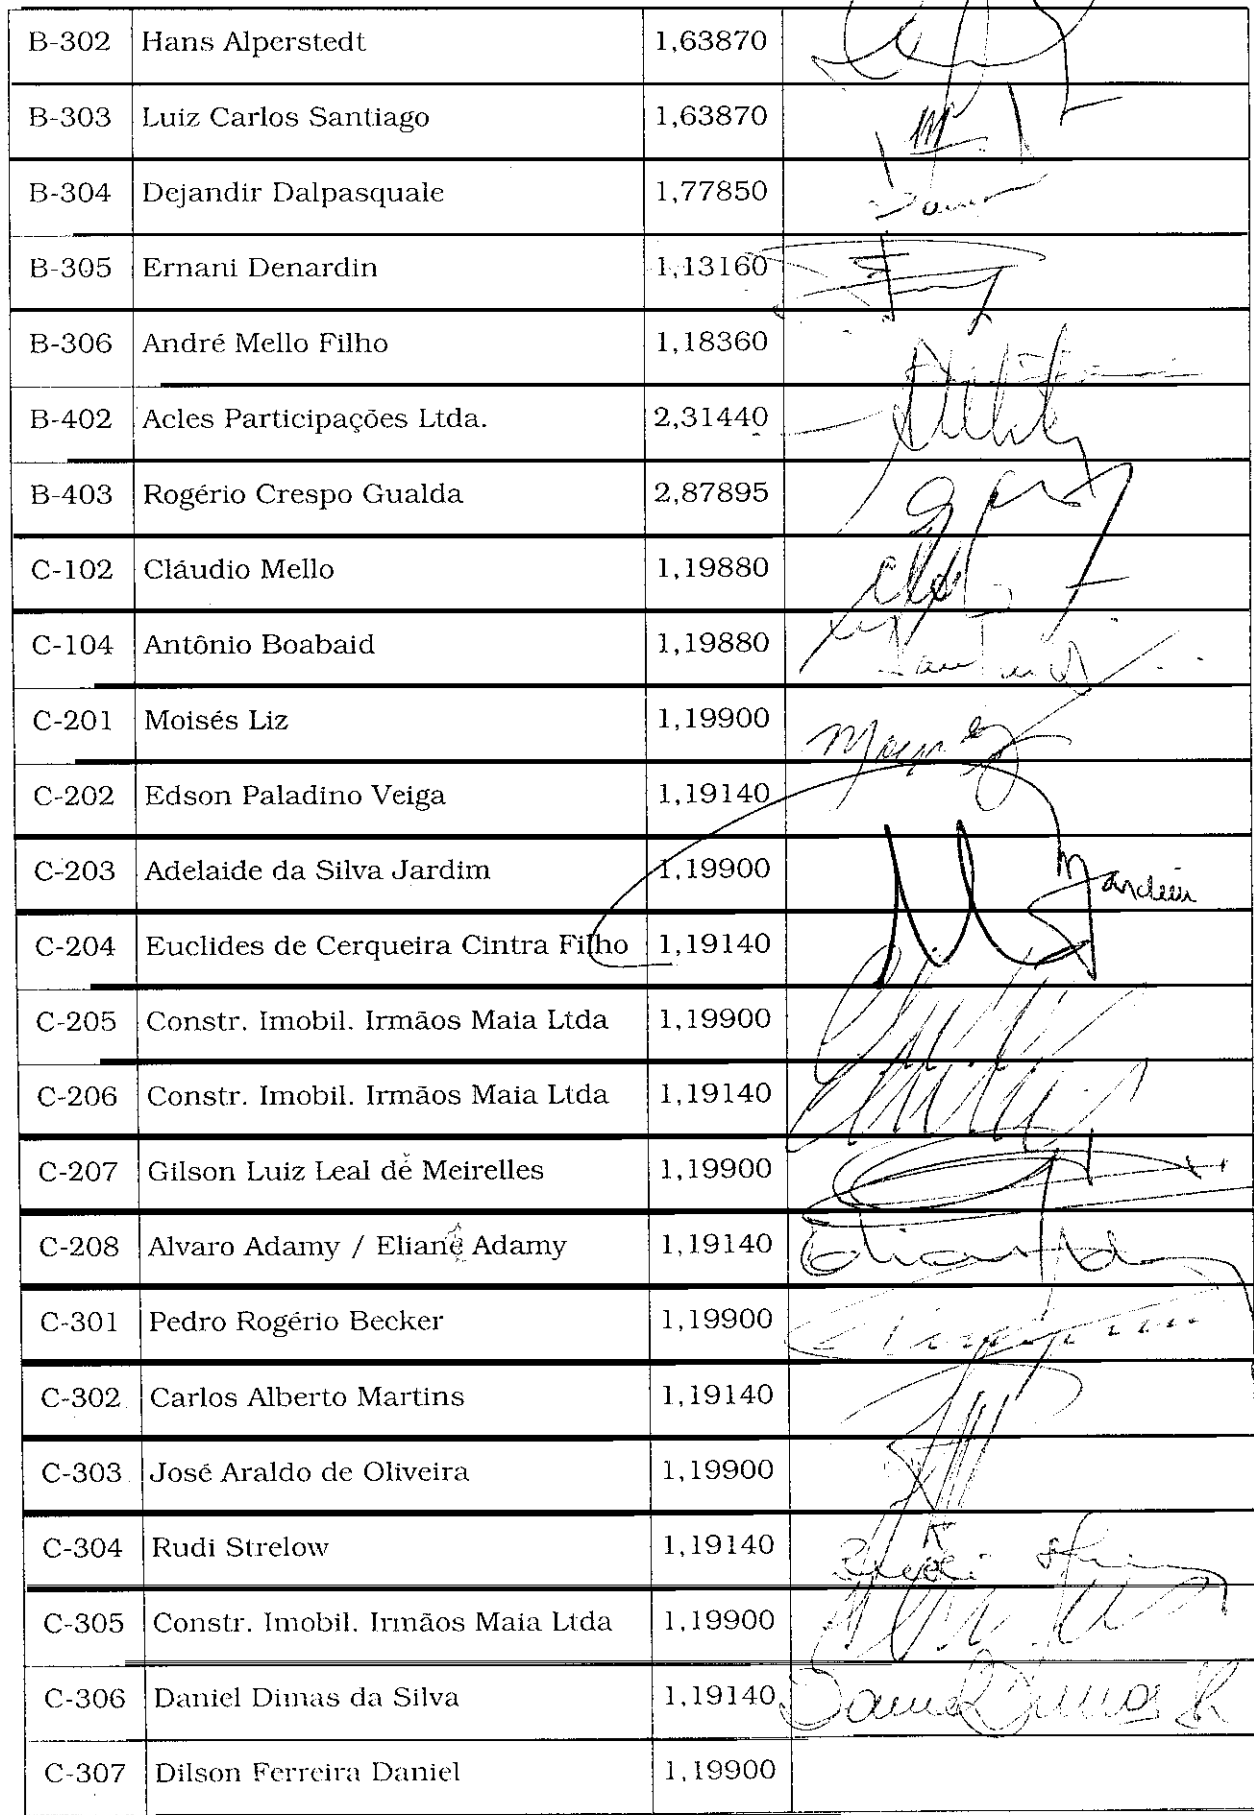 B-302 Hans Alperstedt 1,63870
B-303 Luiz Carlos Santiago 1,63870
B-304 Dejandir Dalpasquale 1,77850
B-305 Ernani Denardin 1,13160
B-306 André Mello Filho 1,18360
B-402 Acles Participações Ltda. 2,31440
B-403 Rogério Crespo Gualda 2,87895
C-102 Cláudio Mello 1,19880
C-104 Antônio Boabaid 1,19880
C-201 Moisés Liz 1,19900
C-202 Edson Paladino Veiga 1,19140
C-203 Adelaide da Silva Jardim 1,19900
C-204 Euclides de Cerqueira Cintra Filho 1,19140
C-205 Constr. Imobil. Irmãos Maia Ltda 1,19900
C-206 Constr. Imobil. Irmãos Maia Ltda 1,19140
C-207 Gilson Luiz Leal de Meirelles 1,19900
C-208 Alvaro Adamy / Eliane Adamy 1,19140
C-301 Pedro Rogério Becker 1,19900
C-302 Carlos Alberto Martins 1,19140
C-303 José Araldo de Oliveira 1,19900
C-304 Rudi Strelow 1,19140
C-305 Constr. Imobil. Irmãos Maia Ltda 1,19900
C-306 Daniel Dimas da Silva 1,19140 Daniel Dimas
C-307 Dilson Ferreira Daniel 1,19900